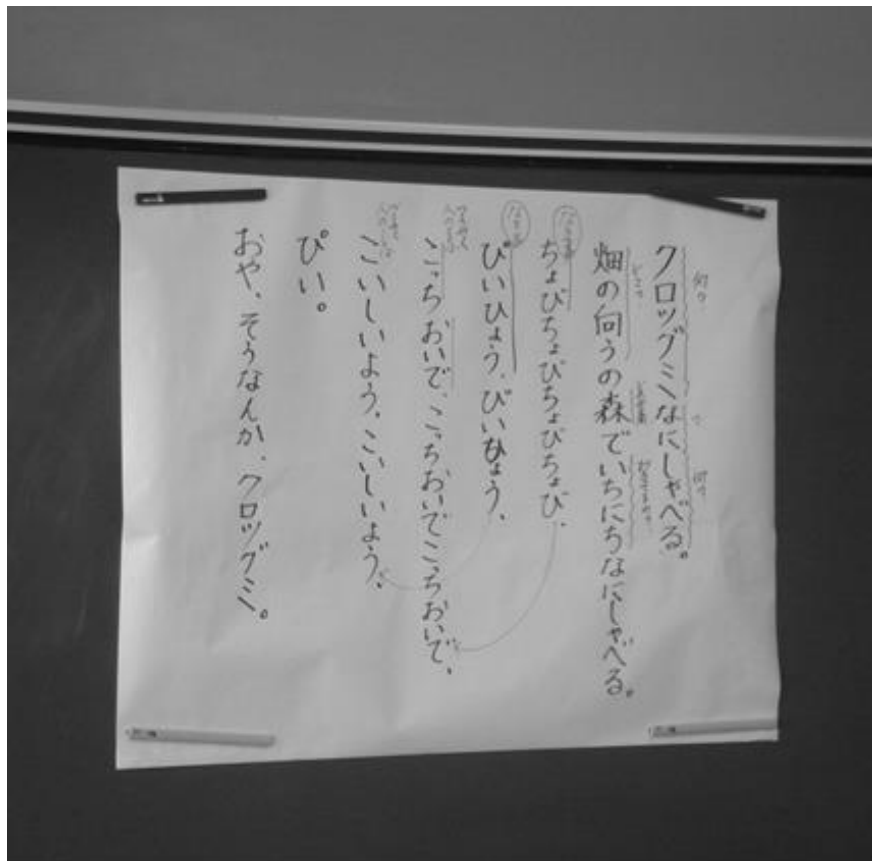 クロツグミなにしゃべる。
畑の向うの森でいちにちなにしゃべる。
ちょびちょびちょびちょび、
ぴいひょう、ぴいひょう、
こっちおいで、こっちおいでこっちおいで、
こいしいよう、こいしいよう、
ぴい。
おや、そうなんか、クロツグミ。